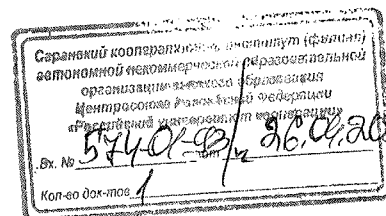 Саранский кооперативный институт (филиал)
автономной некоммерческой образовательной
организации высшего образования
Центросоюза Российской Федерации
«Российский университет кооперации»
Вх. № 574-01-93/ от 26.04.20
Кол-во док-тов 1